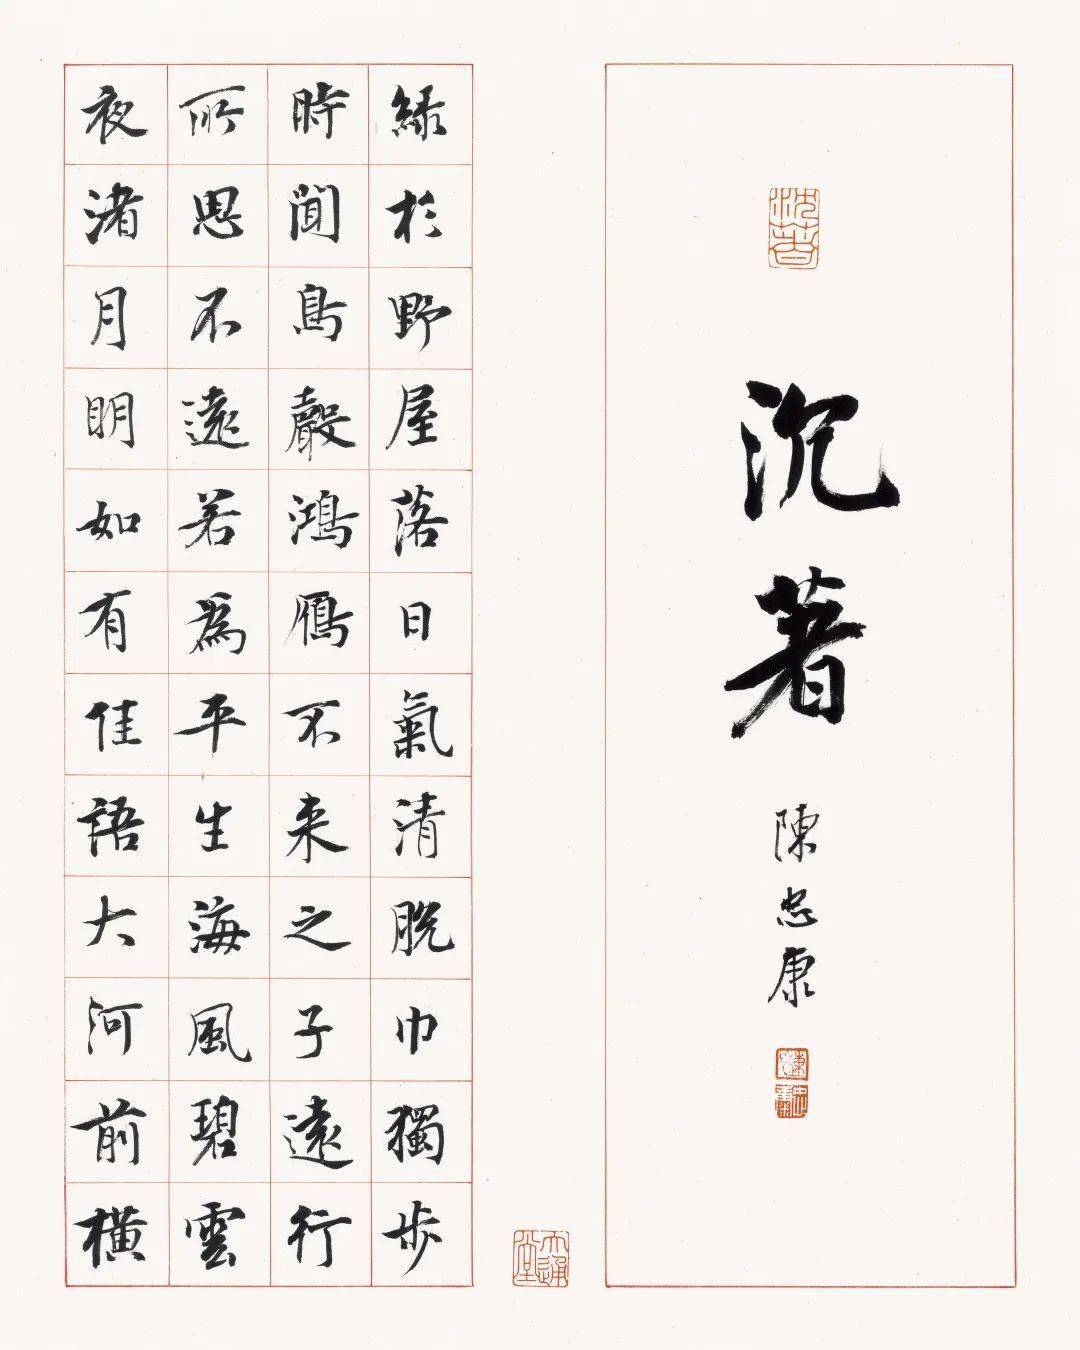 沈著
沉著
陳忠康
陳
忠康
綠於野屋落日氣清脫巾獨步
時聞鳥聲鴻鴈不来之子遠行
所思不遠若為平生海風碧雲
夜渚月明如有佳語大河前橫